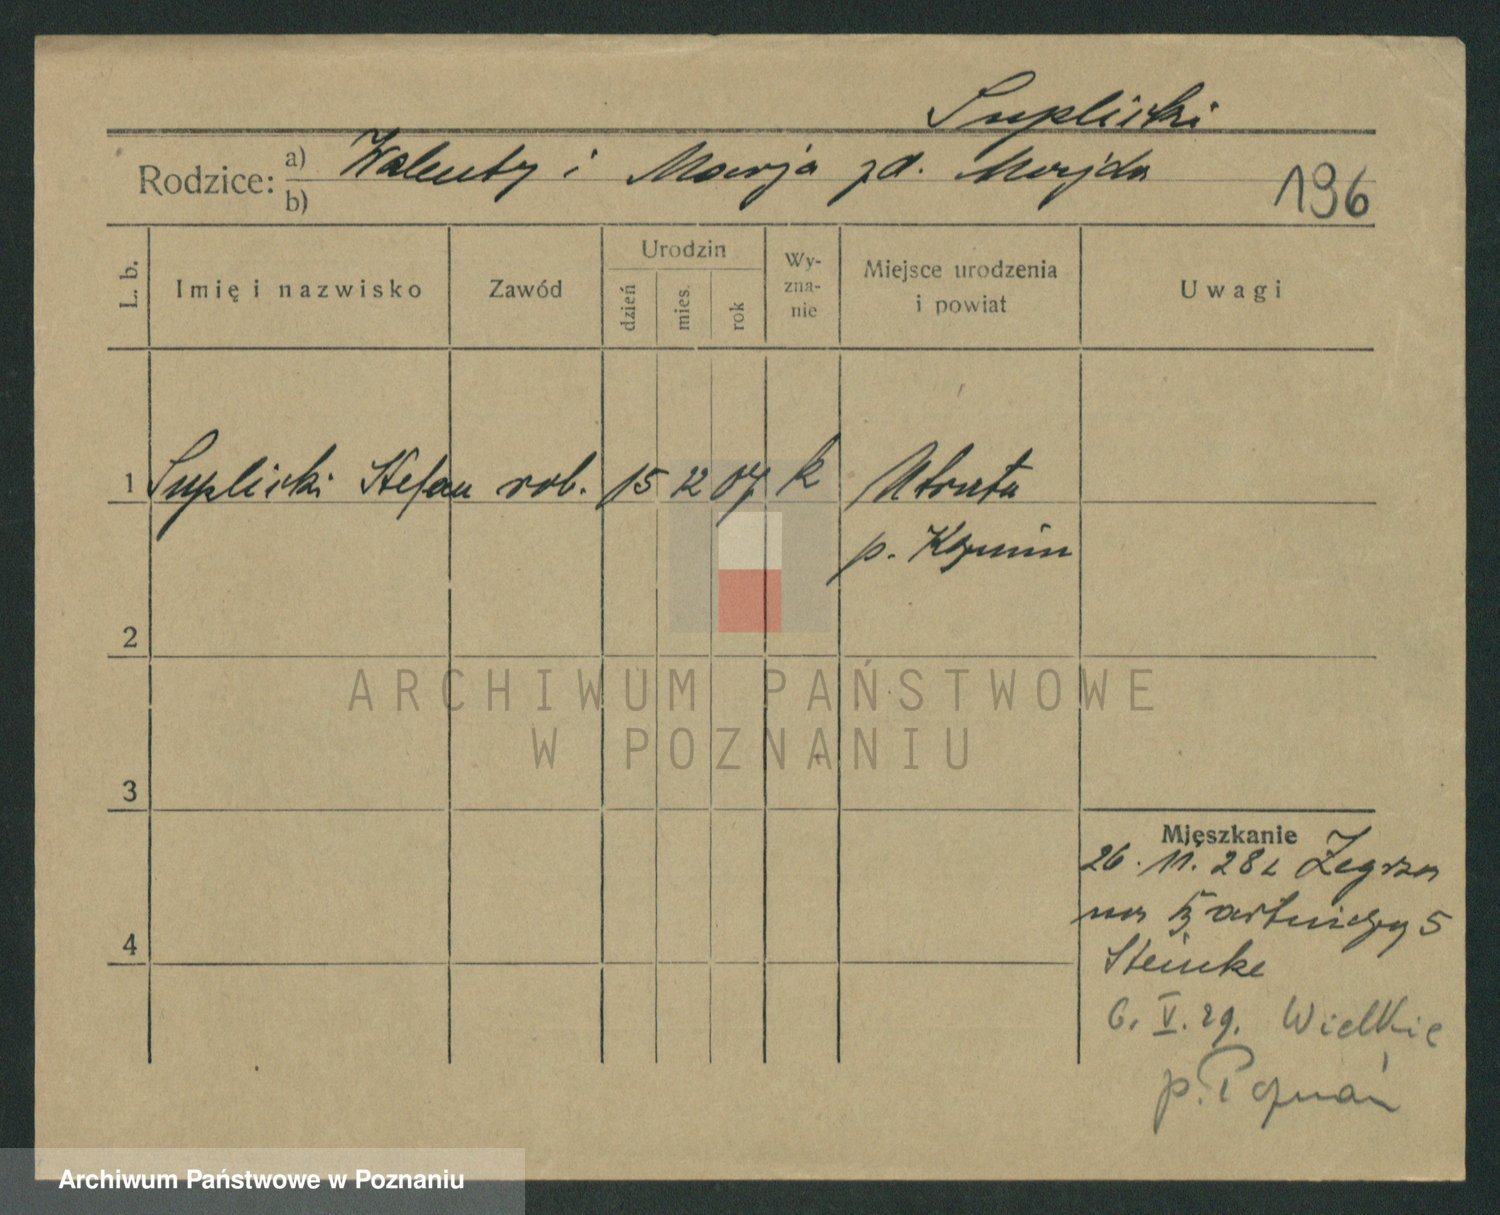 Suplicki
Rodzice: a) Walenty i Marja zd. Majda
b)
196
L. b.
Imię i nazwisko
Zawód
Urodzin
dzień
mies.
rok
Wy-
zna-
nie
Miejsce urodzenia
i powiat
Uwagi
1 Suplicki Stefan rob. 15 12 07 k Utrata
p. Kozmin
2
3
4
Mieszkanie
26. 11. 28 z Zegrza
na Bartniczy 5
Steinke
6. V. 29. Wielkie
p. Poznań
ARCHIWUM PAŃSTWOWE
W POZNANIU
Archiwum Państwowe w Poznaniu